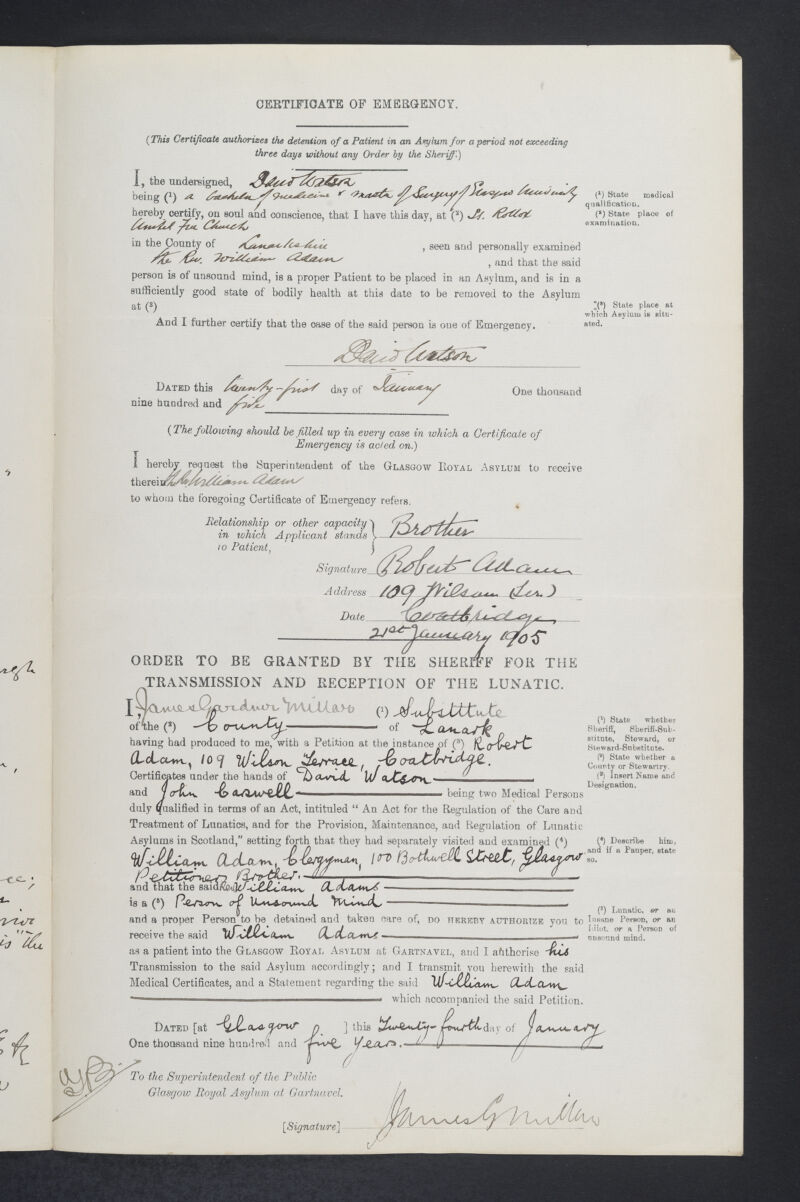 CERTIFICATE OF EMERGENCY.
(This Certificate authorizes the detention of a Patient in an Asylum for a period not exceeding
three days without any Order by the Sheriff.)
I, the undersigned, David Watson
being (¹) a bachelor of medicine & master of Surgery of Glasgow University
(¹) State medical
qualification.
hereby certify, on soul and conscience, that I have this day, at (²) St. Rollox
(²) State place of
examination.
United Free Church
in the County of Lanarkshire , seen and personally examined
the Rev. William Adam , and that the said
person is of unsound mind, is a proper Patient to be placed in an Asylum, and is in a
sufficiently good state of bodily health at this date to be removed to the Asylum
at (³)
(³) State place at
which Asylum is situ-
ated.
And I further certify that the case of the said person is one of Emergency.
David Watson
DATED this twenty-first day of January One thousand
nine hundred and five
(The following should be filled up in every case in which a Certificate of
Emergency is acted on.)
I hereby request the Superintendent of the GLASGOW ROYAL ASYLUM to receive
therein William Adam
to whom the foregoing Certificate of Emergency refers.
Relationship or other capacity
in which Applicant stands
to Patient,
Brother
Signature Robert Adam
Address 109 Wilson (Ter.)
Coatbridge
Date 21st January 1905
ORDER TO BE GRANTED BY THE SHERIFF FOR THE
TRANSMISSION AND RECEPTION OF THE LUNATIC.
I, James Gardner Millar (¹) Substitute
of the (²) County of Lanark
(¹) State whether
Sheriff, Sheriff-Sub-
stitute, Steward, or
Steward-Substitute.
(²) State whether a
County or Stewartry.
(³) Insert Name and
Designation.
having had produced to me, with a Petition at the instance of (³) Robert
Adam, 109 Wilson Terrace, Coatbridge.
Certificates under the hands of David Watson
and John Carswell being two Medical Persons
duly qualified in terms of an Act, intituled "An Act for the Regulation of the Care and
Treatment of Lunatics, and for the Provision, Maintenance, and Regulation of Lunatic
Asylums in Scotland," setting forth that they had separately visited and examined (⁴)
(⁴) Describe him,
and if a Pauper, state
so.
William Adam, Clergyman, 100 Bothwell Street, Glasgow
Petitioners Brother.
and that the said Rev William Adams
is a (⁵) Person of Unsound Mind
(⁵) Lunatic, or an
Insane Person, or an
Idiot, or a Person of
unsound mind.
and a proper Person to be detained and taken care of, DO HEREBY AUTHORIZE you to
receive the said William Adams
as a patient into the GLASGOW ROYAL ASYLUM at GARTNAVEL, and I authorise his
Transmission to the said Asylum accordingly; and I transmit you herewith the said
Medical Certificates, and a Statement regarding the said William Adam
which accompanied the said Petition.
DATED [at Glasgow ] this Twenty-fourth day of January
One thousand nine hundred and five Years.
To the Superintendent of the Public
Glasgow Royal Asylum at Gartnavel.
[Signature] James G Millar